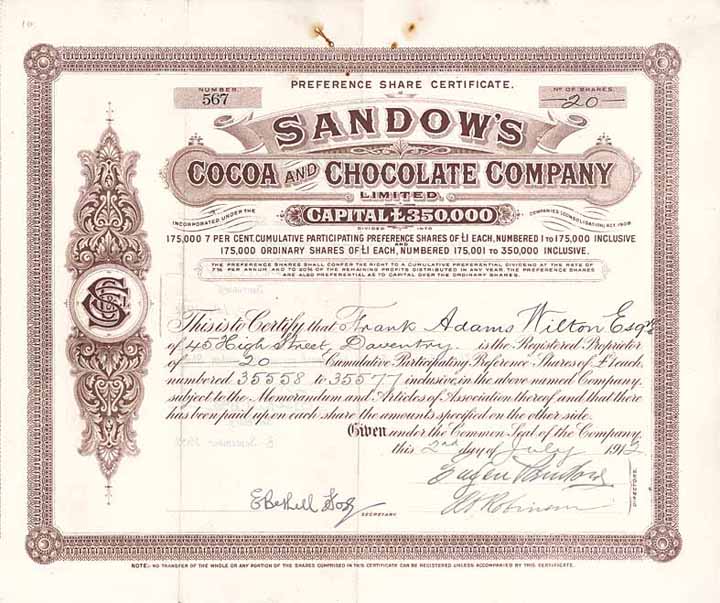 PREFERENCE SHARE CERTIFICATE.
NUMBER
567
Nº OF SHARES.
20
SANDOW'S
COCOA AND CHOCOLATE COMPANY
LIMITED.
INCORPORATED UNDER THE
CAPITAL £350,000
COMPANIES (CONSOLIDATION) ACT, 1908
DIVIDED INTO
175,000 7 PER CENT. CUMULATIVE PARTICIPATING PREFERENCE SHARES OF £1 EACH, NUMBERED 1 TO 175,000 INCLUSIVE
AND
175,000 ORDINARY SHARES OF £1 EACH, NUMBERED 175,001 TO 350,000 INCLUSIVE.
THE PREFERENCE SHARES SHALL CONFER THE RIGHT TO A CUMULATIVE PREFERENTIAL DIVIDEND AT THE RATE OF
7% PER ANNUM AND TO 20% OF THE REMAINING PROFITS DISTRIBUTED IN ANY YEAR. THE PREFERENCE SHARES
ARE ALSO PREFERENTIAL AS TO CAPITAL OVER THE ORDINARY SHARES.
This is to Certify that Frank Adams Wilton Esqre
of 45 High Street, Daventry. is the Registered Proprietor
of 20 Cumulative Participating Preference Shares of £1 each,
numbered 35558 to 35577 inclusive, in the above named Company,
subject to the Memorandum and Articles of Association thereof and that there
has been paid up on each share the amounts specified on the other side.
Given under the Common Seal of the Company,
this 2nd day of July 1912
Eugen Sandow
Robinson
DIRECTORS.
SECRETARY
NOTE:- NO TRANSFER OF THE WHOLE OR ANY PORTION OF THE SHARES COMPRISED IN THIS CERTIFICATE CAN BE REGISTERED UNLESS ACCOMPANIED BY THIS CERTIFICATE.